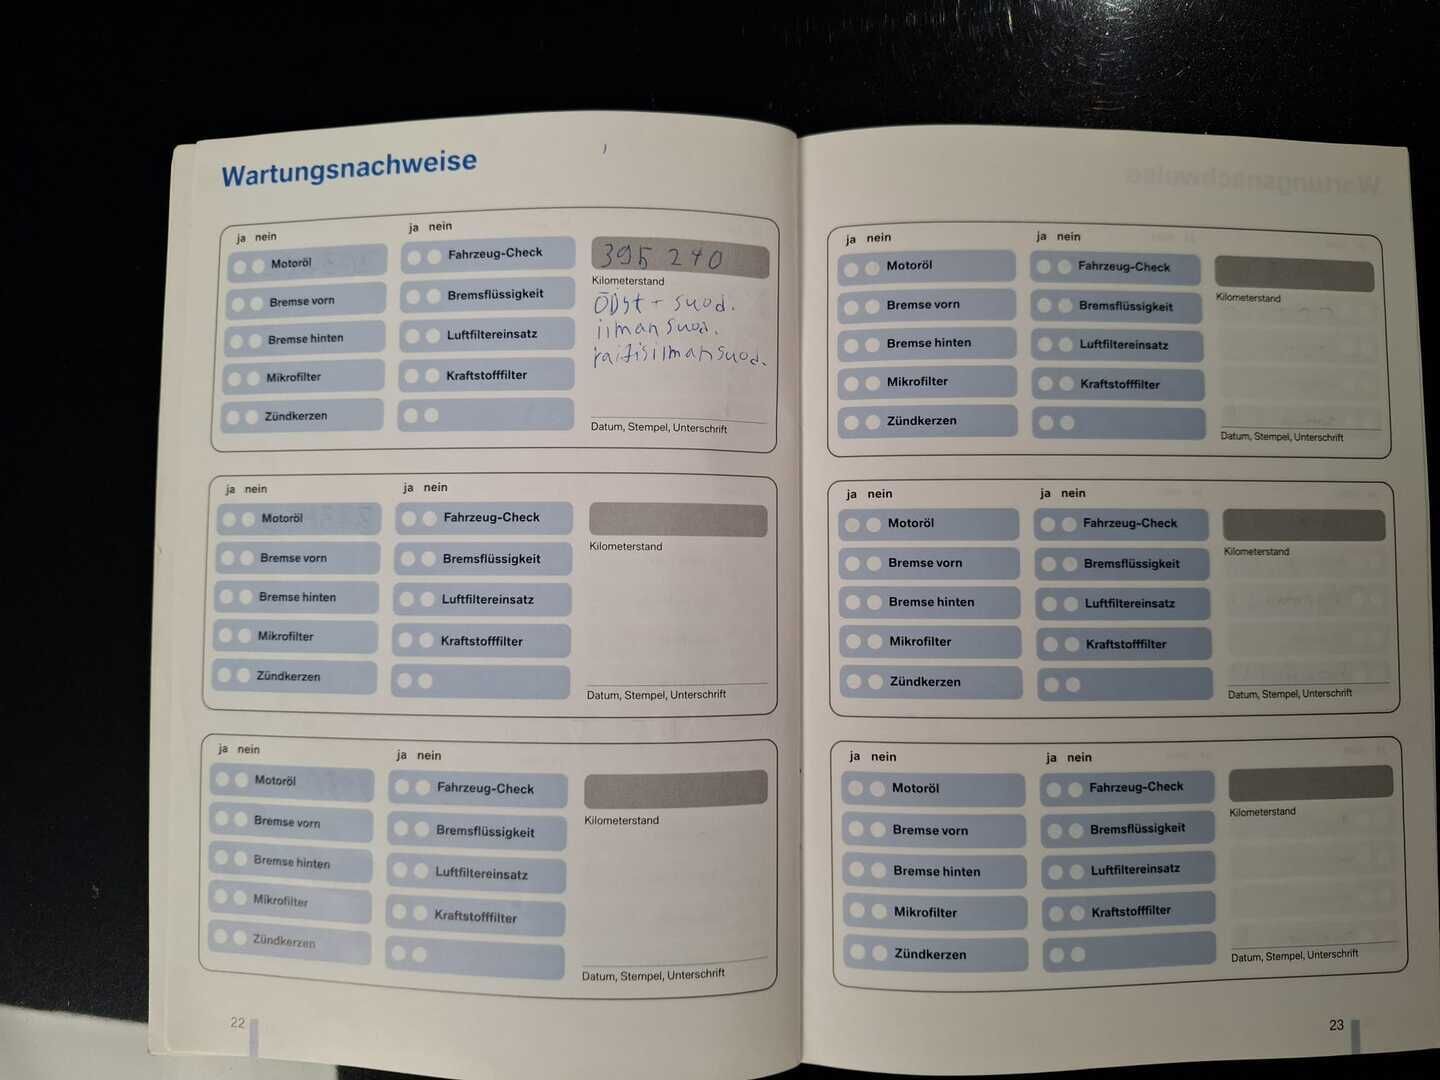 Wartungsnachweise
ja nein
Motoröl
Bremse vorn
Bremse hinten
Mikrofilter
Zündkerzen
ja nein
Fahrzeug-Check
Bremsflüssigkeit
Luftfiltereinsatz
Kraftstofffilter
395 240
Kilometerstand
suod.
ilmansuod.
raitisilmansuod.
Datum, Stempel, Unterschrift
ja nein
Motoröl
Bremse vorn
Bremse hinten
Mikrofilter
Zündkerzen
ja nein
Fahrzeug-Check
Bremsflüssigkeit
Luftfiltereinsatz
Kraftstofffilter
Kilometerstand
Datum, Stempel, Unterschrift
ja nein
Motoröl
Bremse vorn
Bremse hinten
Mikrofilter
Zündkerzen
ja nein
Fahrzeug-Check
Bremsflüssigkeit
Luftfiltereinsatz
Kraftstofffilter
Kilometerstand
Datum, Stempel, Unterschrift
22
ja nein
Motoröl
Bremse vorn
Bremse hinten
Mikrofilter
Zündkerzen
ja nein
Fahrzeug-Check
Bremsflüssigkeit
Luftfiltereinsatz
Kraftstofffilter
Kilometerstand
Datum, Stempel, Unterschrift
ja nein
Motoröl
Bremse vorn
Bremse hinten
Mikrofilter
Zündkerzen
ja nein
Fahrzeug-Check
Bremsflüssigkeit
Luftfiltereinsatz
Kraftstofffilter
Kilometerstand
Datum, Stempel, Unterschrift
ja nein
Motoröl
Bremse vorn
Bremse hinten
Mikrofilter
Zündkerzen
ja nein
Fahrzeug-Check
Bremsflüssigkeit
Luftfiltereinsatz
Kraftstofffilter
Kilometerstand
Datum, Stempel, Unterschrift
23